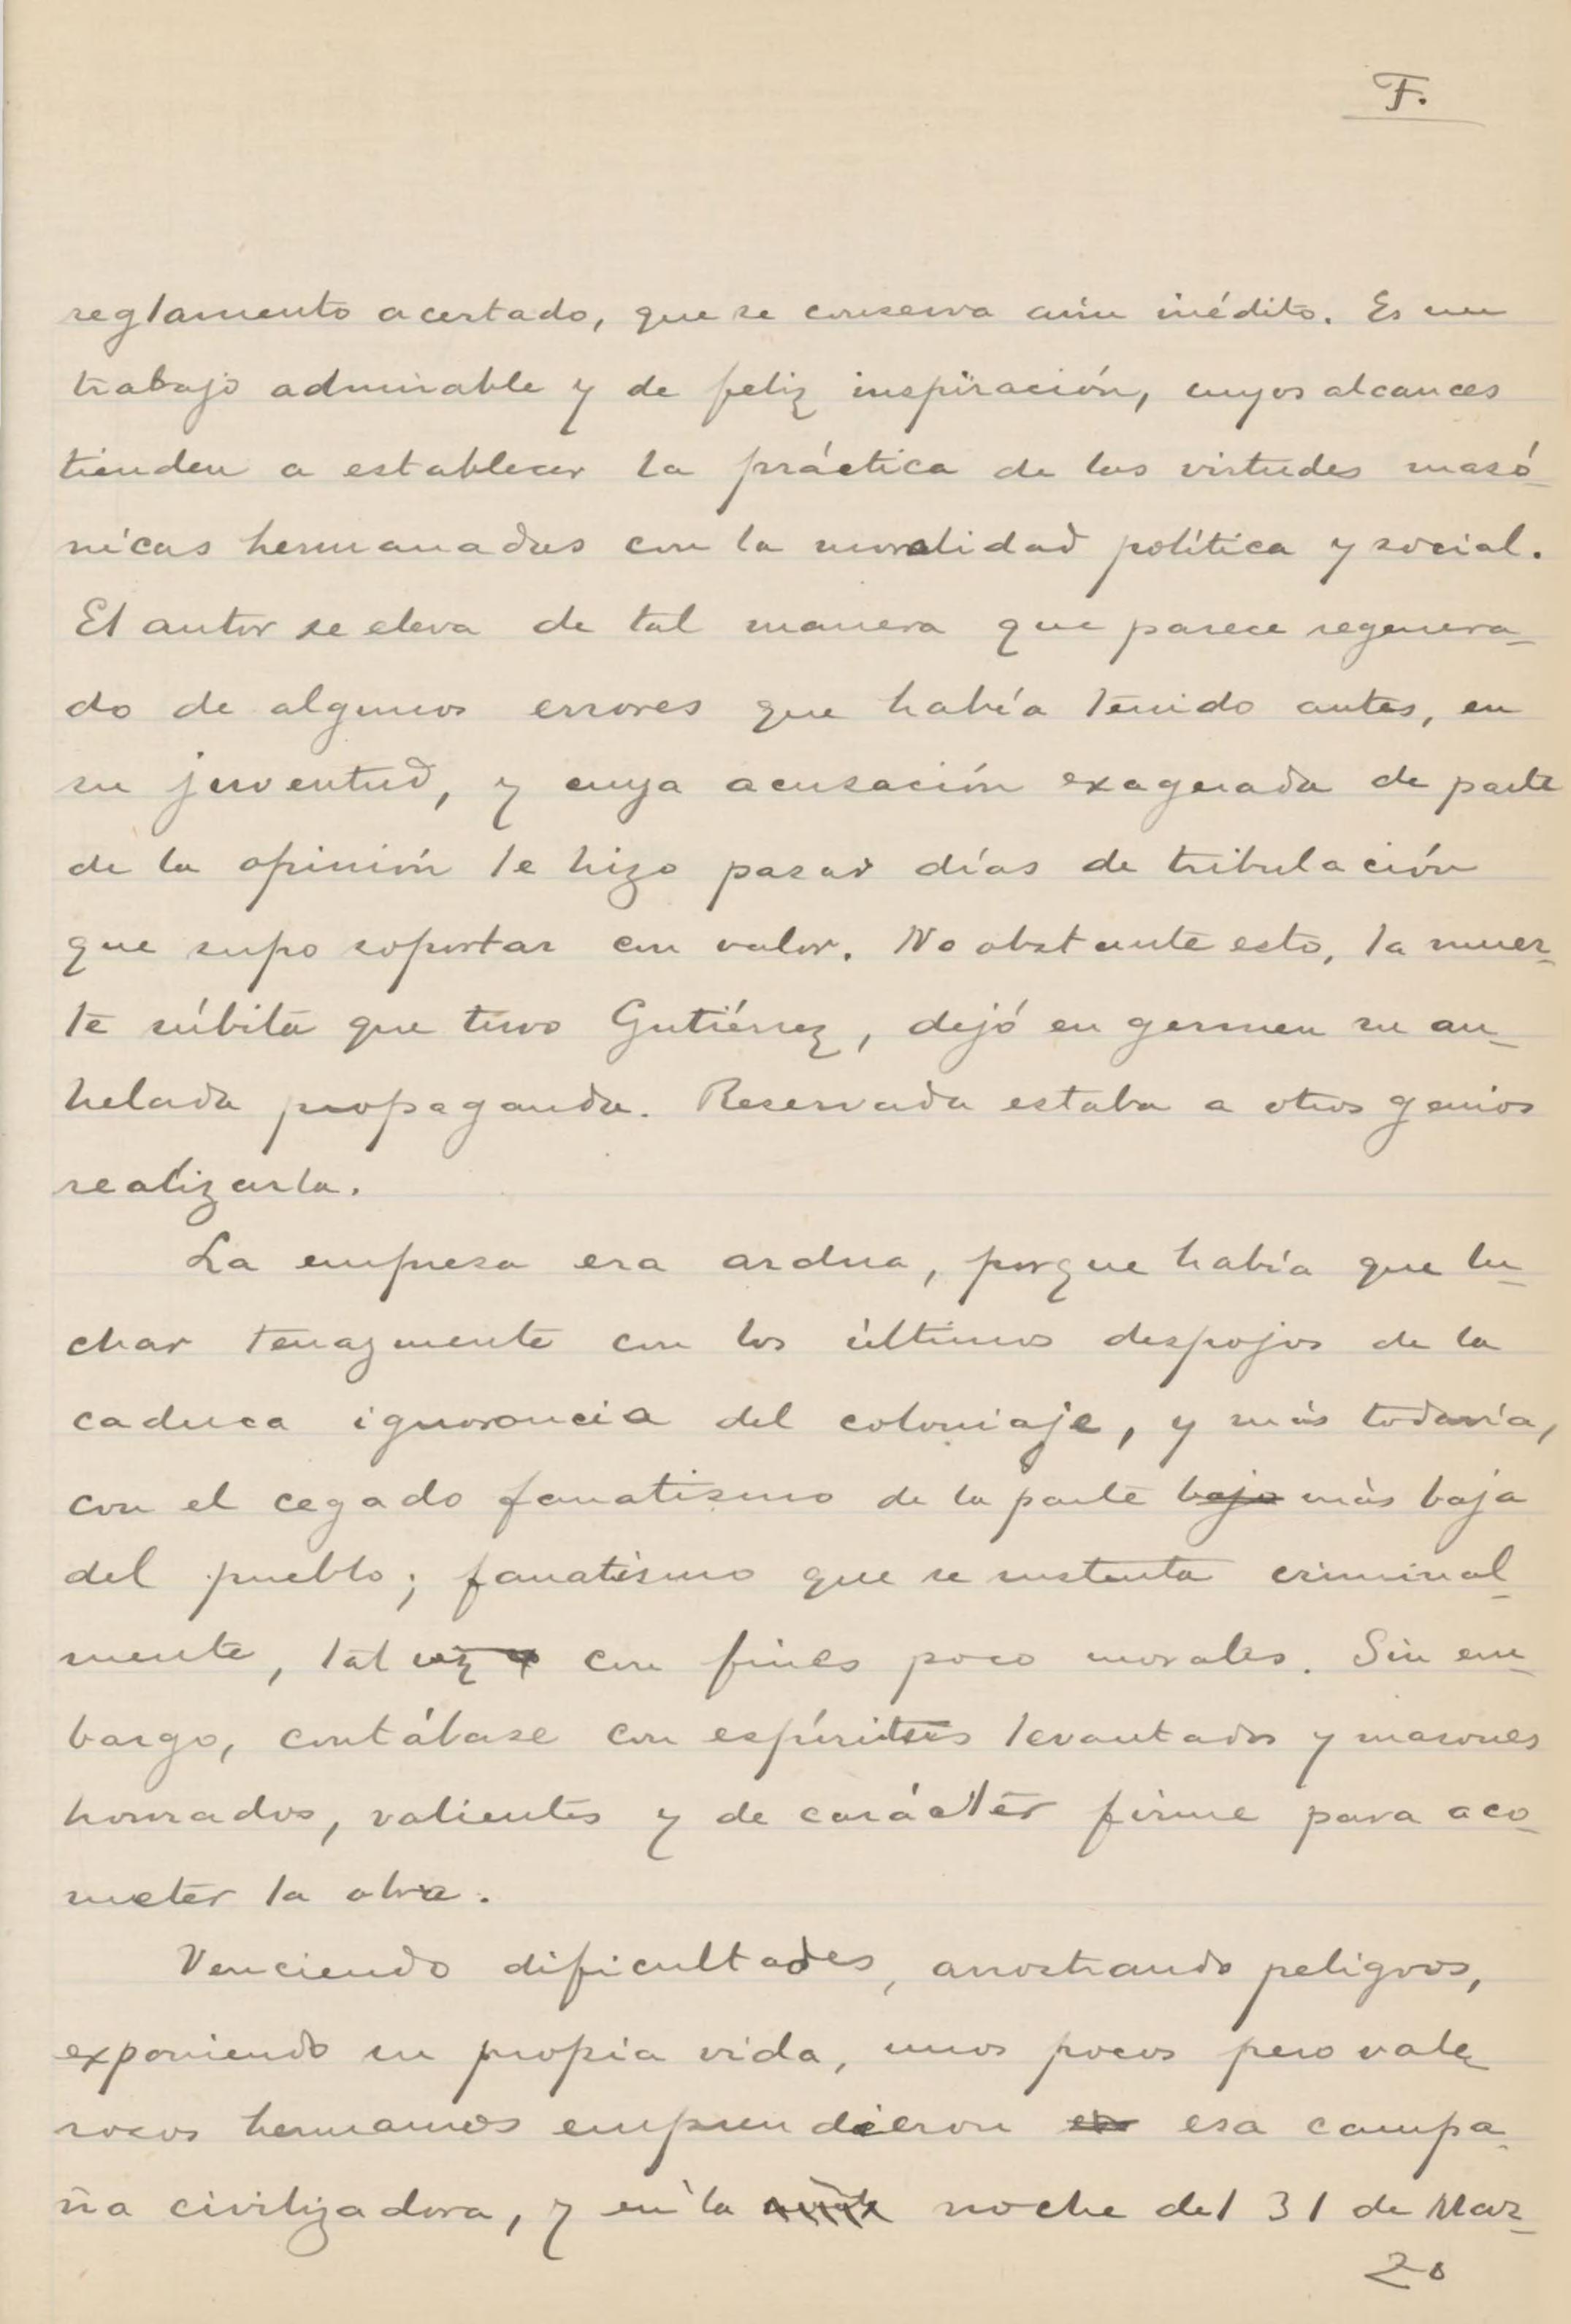 F.
reglamento acertado, que se conserva aún inédito. Es un
trabajo admirable y de feliz inspiración, cuyos alcances
tienden a establecer la práctica de las virtudes masó-
nicas hermanadas con la moralidad política y social.
El autor se eleva de tal manera que parece regenera-
do de algunos errores que había tenido antes, en
su juventud, y cuya acusación exagerada de parte
de la opinión le hizo pasar días de tribulación
que supo soportar con valor. No obstante esto, la muer-
te súbita que tuvo Gutiérrez, dejó en germen su an-
helada propaganda. Reservada estaba a otros genios
realizarla.
La empresa era ardua, porque había que lu-
char tenazmente con los últimos despojos de la
caduca ignorancia del coloniaje, y más todavía,
con el cegado fanatismo de la parte bajo más baja
del pueblo; fanatismo que se sustenta criminal-
mente, tal vez con fines poco morales. Sin em-
bargo, contábase con espíritus levantados y masones
honrados, valientes y de carácter firme para aco-
meter la obra.
Venciendo dificultades, arrostrando peligros,
exponiendo su propia vida, unos pocos pero vale-
rosos hermanos emprendieron esa campa-
ña civilizadora, y en la noche del 31 de Mar-
zo